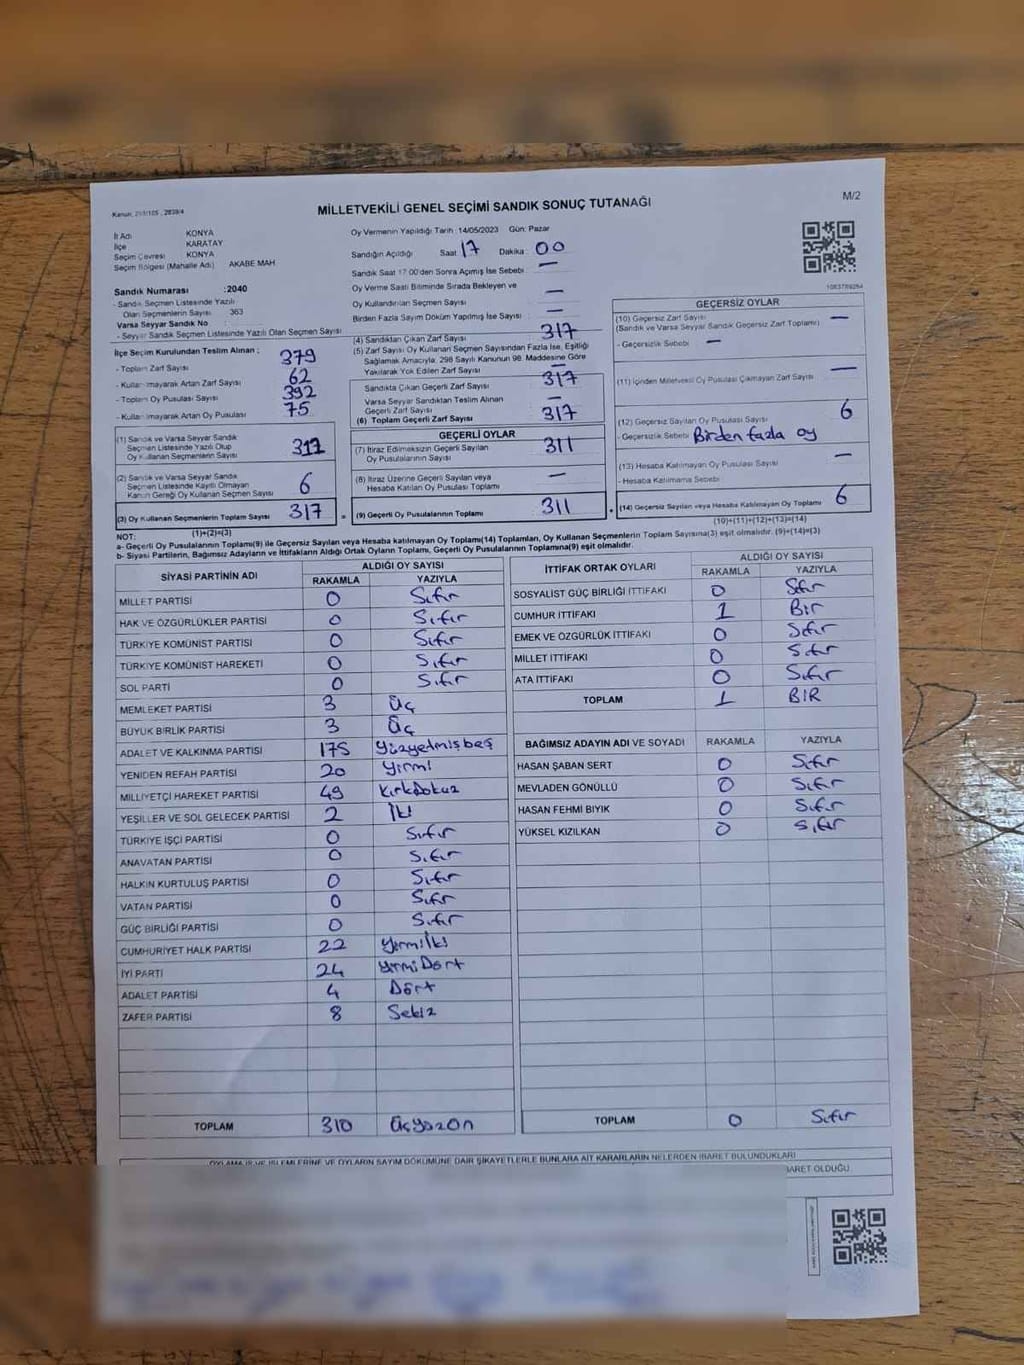 MİLLETVEKİLİ GENEL SEÇİMİ SANDIK SONUÇ TUTANAĞI
M/2
İl Adı KONYA
İlçe KARATAY
Seçim Çevresi KONYA
Seçim Bölgesi (Mahalle Adı) AKABE MAH
Sandık Numarası :2040
- Sandık Seçmen Listesinde Yazılı
Olan Seçmenlerin Sayısı 363
Varsa Seyyar Sandık No :
- Seyyar Sandık Seçmen Listesinde Yazılı Olan Seçmen Sayısı
İlçe Seçim Kurulundan Teslim Alınan ;
- Toplam Zarf Sayısı 379
- Kullanılmayarak Artan Zarf Sayısı 62
- Toplam Oy Pusulası Sayısı 392
- Kullanılmayarak Artan Oy Pusulası 75
(1) Sandık ve Varsa Seyyar Sandık
Seçmen Listesinde Yazılı Olup
Oy Kullanan Seçmenlerin Sayısı
(2) Sandık ve Varsa Seyyar Sandık
Seçmen Listesinde Kayıtlı Olmayan
Kanun Gereği Oy Kullanan Seçmen Sayısı 6
(3) Oy Kullanan Seçmenlerin Toplam Sayısı 317
(1)+(2)=(3)
Oy Vermenin Yapıldığı Tarih : 14/05/2023 Gün: Pazar
Sandığın Açıldığı Saat : 17 Dakika : 00
Sandık Saat 17:00'den Sonra Açılmış İse Sebebi : —
Oy Verme Saati Bitiminde Sırada Bekleyen ve
Oy Kullandırılan Seçmen Sayısı —
Birden Fazla Sayım Döküm Yapılmış İse Sayısı : —
(4) Sandıktan Çıkan Zarf Sayısı 317
(5) Zarf Sayısı Oy Kullanan Seçmen Sayısından Fazla İse, Eşitliği
Sağlamak Amacıyla, 298 Sayılı Kanunun 98. Maddesine Göre
Yakılarak Yok Edilen Zarf Sayısı —
Sandıkta Çıkan Geçerli Zarf Sayısı 317
Varsa Seyyar Sandıktan Teslim Alınan
Geçerli Zarf Sayısı —
(6) Toplam Geçerli Zarf Sayısı 317
GEÇERLİ OYLAR
(7) İtiraz Edilmeksizin Geçerli Sayılan
Oy Pusulalarının Sayısı 311
(8) İtiraz Üzerine Geçerli Sayılan veya
Hesaba Katılan Oy Pusulası Toplamı —
(9) Geçerli Oy Pusulalarının Toplamı 311
GEÇERSİZ OYLAR
(10) Geçersiz Zarf Sayısı —
(Sandık ve Varsa Seyyar Sandık Geçersiz Zarf Toplamı)
- Geçersizlik Sebebi : —
(11) İçinden Milletvekili Oy Pusulası Çıkmayan Zarf Sayısı —
(12) Geçersiz Sayılan Oy Pusulası Sayısı 6
- Geçersizlik Sebebi Birden fazla oy
(13) Hesaba Katılmayan Oy Pusulası Sayısı —
- Hesaba Katılmama Sebebi
(14) Geçersiz Sayılan veya Hesaba Katılmayan Oy Toplamı 6
(10)+(11)+(12)+(13)=(14)
NOT:
a- Geçerli Oy Pusulalarının Toplamı(9) ile Geçersiz Sayılan veya Hesaba katılmayan Oy Toplamı(14) Toplamları, Oy Kullanan Seçmenlerin Toplam Sayısına(3) eşit olmalıdır. (9)+(14)=(3)
b- Siyasi Partilerin, Bağımsız Adayların ve İttifakların Aldığı Ortak Oyların Toplamı, Geçerli Oy Pusulalarının Toplamına(9) eşit olmalıdır.
SİYASİ PARTİNİN ADI ALDIĞI OY SAYISI
RAKAMLA YAZIYLA
MİLLET PARTİSİ 0 Sıfır
HAK VE ÖZGÜRLÜKLER PARTİSİ 0 Sıfır
TÜRKİYE KOMÜNİST PARTİSİ 0 Sıfır
TÜRKİYE KOMÜNİST HAREKETİ 0 Sıfır
SOL PARTİ 0 Sıfır
MEMLEKET PARTİSİ 3 Üç
BÜYÜK BİRLİK PARTİSİ 3 Üç
ADALET VE KALKINMA PARTİSİ 175 Yüzyetmişbeş
YENİDEN REFAH PARTİSİ 20 Yirmi
MİLLİYETÇİ HAREKET PARTİSİ 49 KırkDokuz
YEŞİLLER VE SOL GELECEK PARTİSİ 2 İki
TÜRKİYE İŞÇİ PARTİSİ 0 Sıfır
ANAVATAN PARTİSİ 0 Sıfır
HALKIN KURTULUŞ PARTİSİ 0 Sıfır
VATAN PARTİSİ 0 Sıfır
GÜÇ BİRLİĞİ PARTİSİ 0 Sıfır
CUMHURİYET HALK PARTİSİ 22 Yirmiiki
İYİ PARTİ 24 YirmiDört
ADALET PARTİSİ 4 Dört
ZAFER PARTİSİ 8 Sekiz
TOPLAM 310 Üçyüzon
İTTİFAK ORTAK OYLARI ALDIĞI OY SAYISI
RAKAMLA YAZIYLA
SOSYALİST GÜÇ BİRLİĞİ İTTİFAKI 0 Sıfır
CUMHUR İTTİFAKI 1 Bir
EMEK VE ÖZGÜRLÜK İTTİFAKI 0 Sıfır
MİLLET İTTİFAKI 0 Sıfır
ATA İTTİFAKI 0 Sıfır
TOPLAM 1 BİR
BAĞIMSIZ ADAYIN ADI VE SOYADI RAKAMLA YAZIYLA
HASAN ŞABAN SERT 0 Sıfır
MEVLADEN GÖNÜLLÜ 0 Sıfır
HASAN FEHMİ BIYIK 0 Sıfır
YÜKSEL KIZILKAN 0 Sıfır
TOPLAM 0 Sıfır
OYLAMA İŞ VE İŞLEMLERİNE VE OYLARIN SAYIM DÖKÜMÜNE DAİR ŞİKAYETLERLE BUNLARA AİT KARARLARIN NELERDEN İBARET BULUNDUKLARI
İBARET OLDUĞU